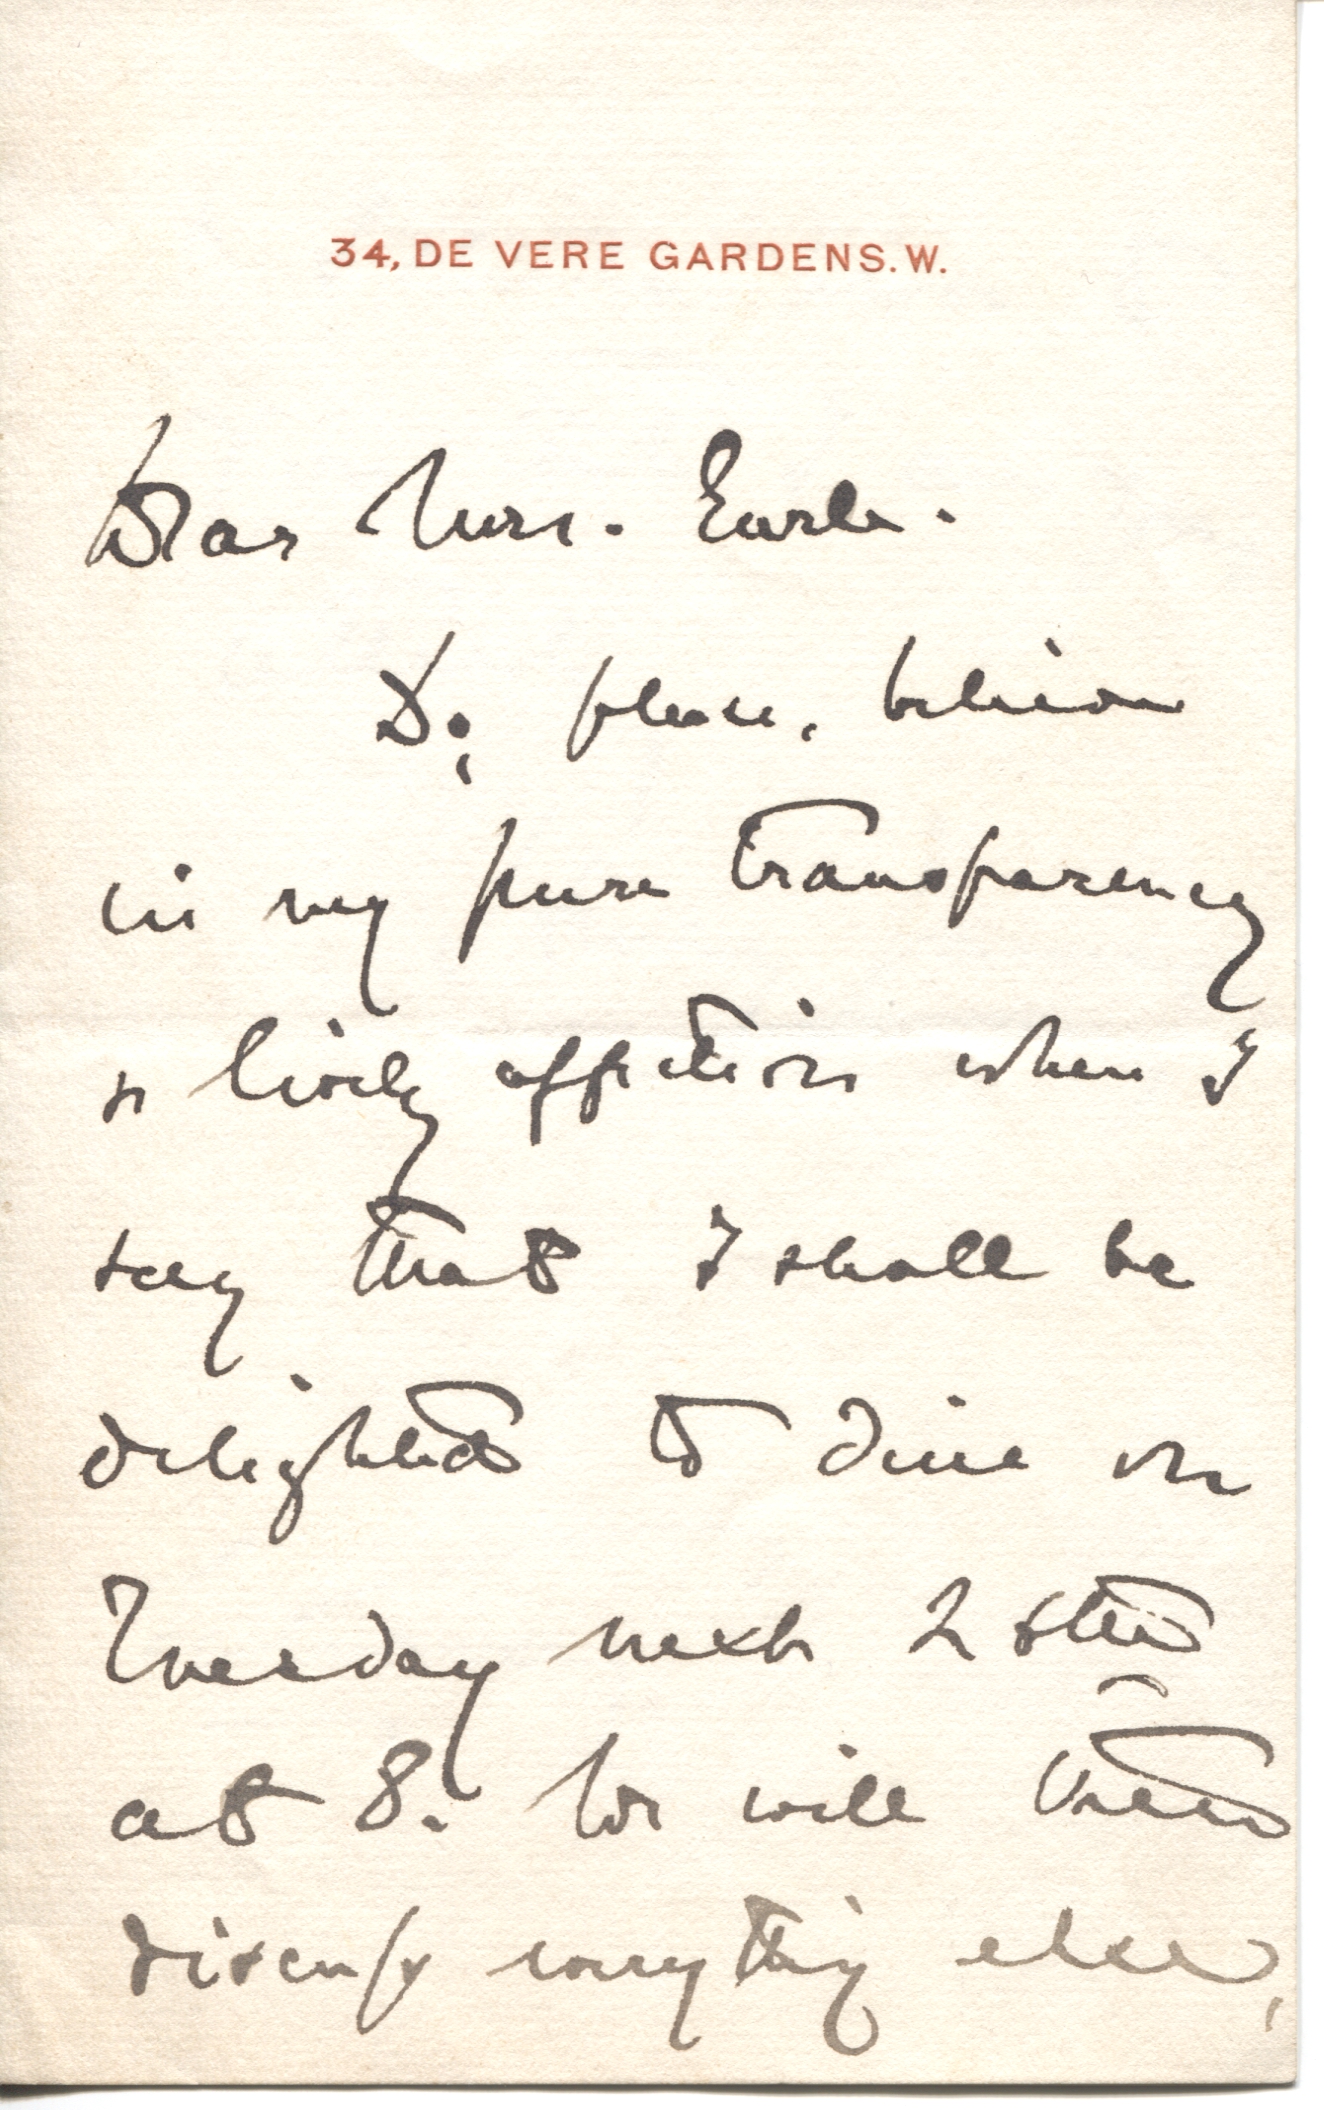 34, DE VERE GARDENS. W.
Dear Mrs. Earle.
Do, please, believe
in my pure transparency
& lively affection when I
say that I shall be
delighted to dine on
Tuesday next
at 8. We will
discuss everything else,